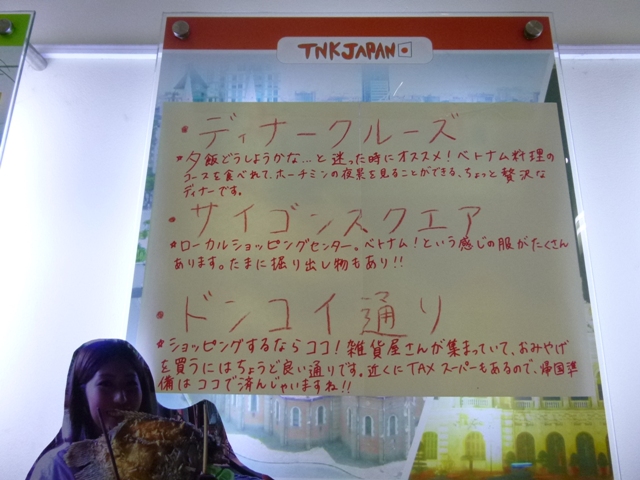 TNKJAPAN
・ディナークルーズ
★夕飯どうしようかな...と迷った時にオススメ！ベトナム料理の
コースを食べれて、ホーチミンの夜景を見ることができる、ちょっと贅沢な
ディナーです。
・サイゴンスクエア
★ローカルショッピングセンター。ベトナム！という感じの服がたくさん
あります。たまに掘り出し物もあり!!
・ドンコイ通り
★ショッピングするならココ！雑貨屋さんが集まっていて、おみやげ
を買うにはちょうど良い通りです。近くにTAXスーパーもあるので、帰国準
備はココで済んじゃいますね!!